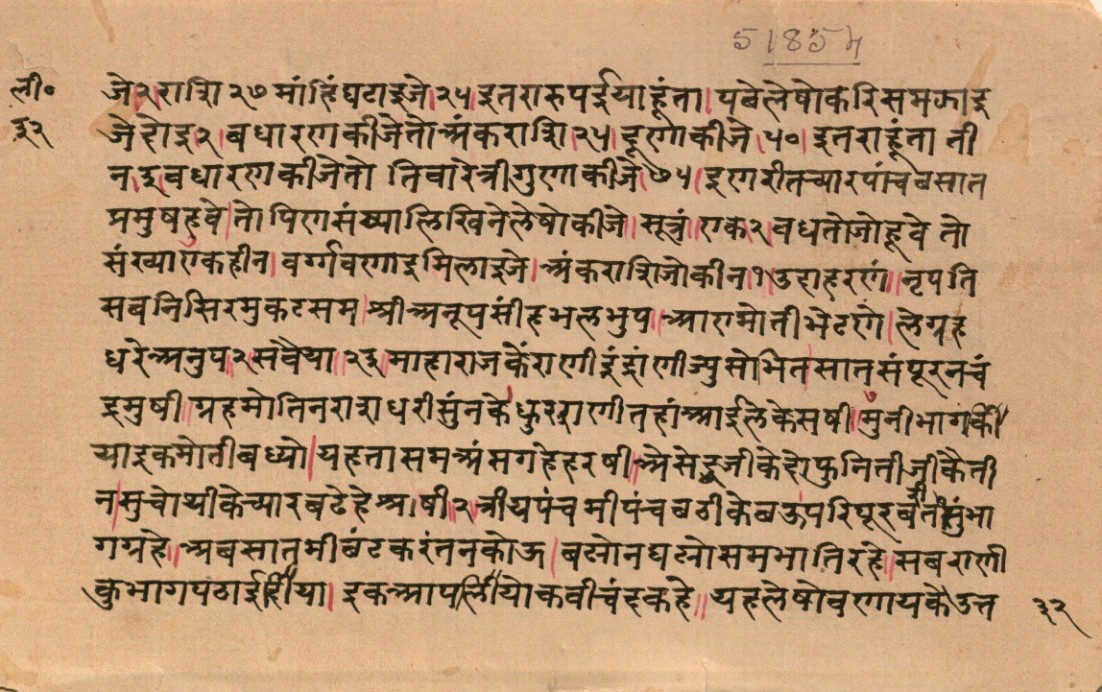 51854
ली० जे २ राशि २७ मांहिं घटाइजे।२५।इतरा रुपईया हूंता।पबे लेषो करि समझाइ
३२ जे होइ २।बधारण कीजे तो अंक राशि।२५।दूणा कीजे।५०।इतरा हूंता ती
न ३ वधारण कीजे तो तिवारे त्रीगुणा कीजे ७५।इण रीत च्यार पांच बे सात
प्रमुष हुवे।तो पिण संख्या लिखिने लेषो कीजे॥सूत्रं॥एक २ वधतो जो हूवे तो
संख्या एक हीन।वर्ग्ग वणाइ मिलाइजे।अंक राशि जो कीन १।उदाहरणं॥नृपति
सबनि सिर मुकट सम।श्री अनूपसींह भल भुप।आण मोती भेट रणे।ले ग्रह
धरे अनुप २ सवैया॥२३ माहाराज कें राणी इंद्रांणी ज्यु सोभित सात संपूरन चं
द्रमुषी॥ग्रह मोतिन रारा धरी सुंन के धुर राणी तहां आई लेके सषी॥मुनी भाग की
या इक मोती बध्यो।यह ता सम अंस गहे हरषी॥असे दुजी के होे फुनि तीजी कै ती
न।सु चोथी के च्यार बढे हे श्रषी॥२ त्रीय पंचमी पंच बठी के बऊं परिपूर बेती सुं भा
ग ग्रहे॥अब सातमी बंट करंतन को ऊ।बट्यो न घट्यो सम भाति रहे॥सब राणी
कु भाग पठाई दीया।इक आप लियो कवी चंद कहे॥यह लेषो वणाय के उत्त ३२